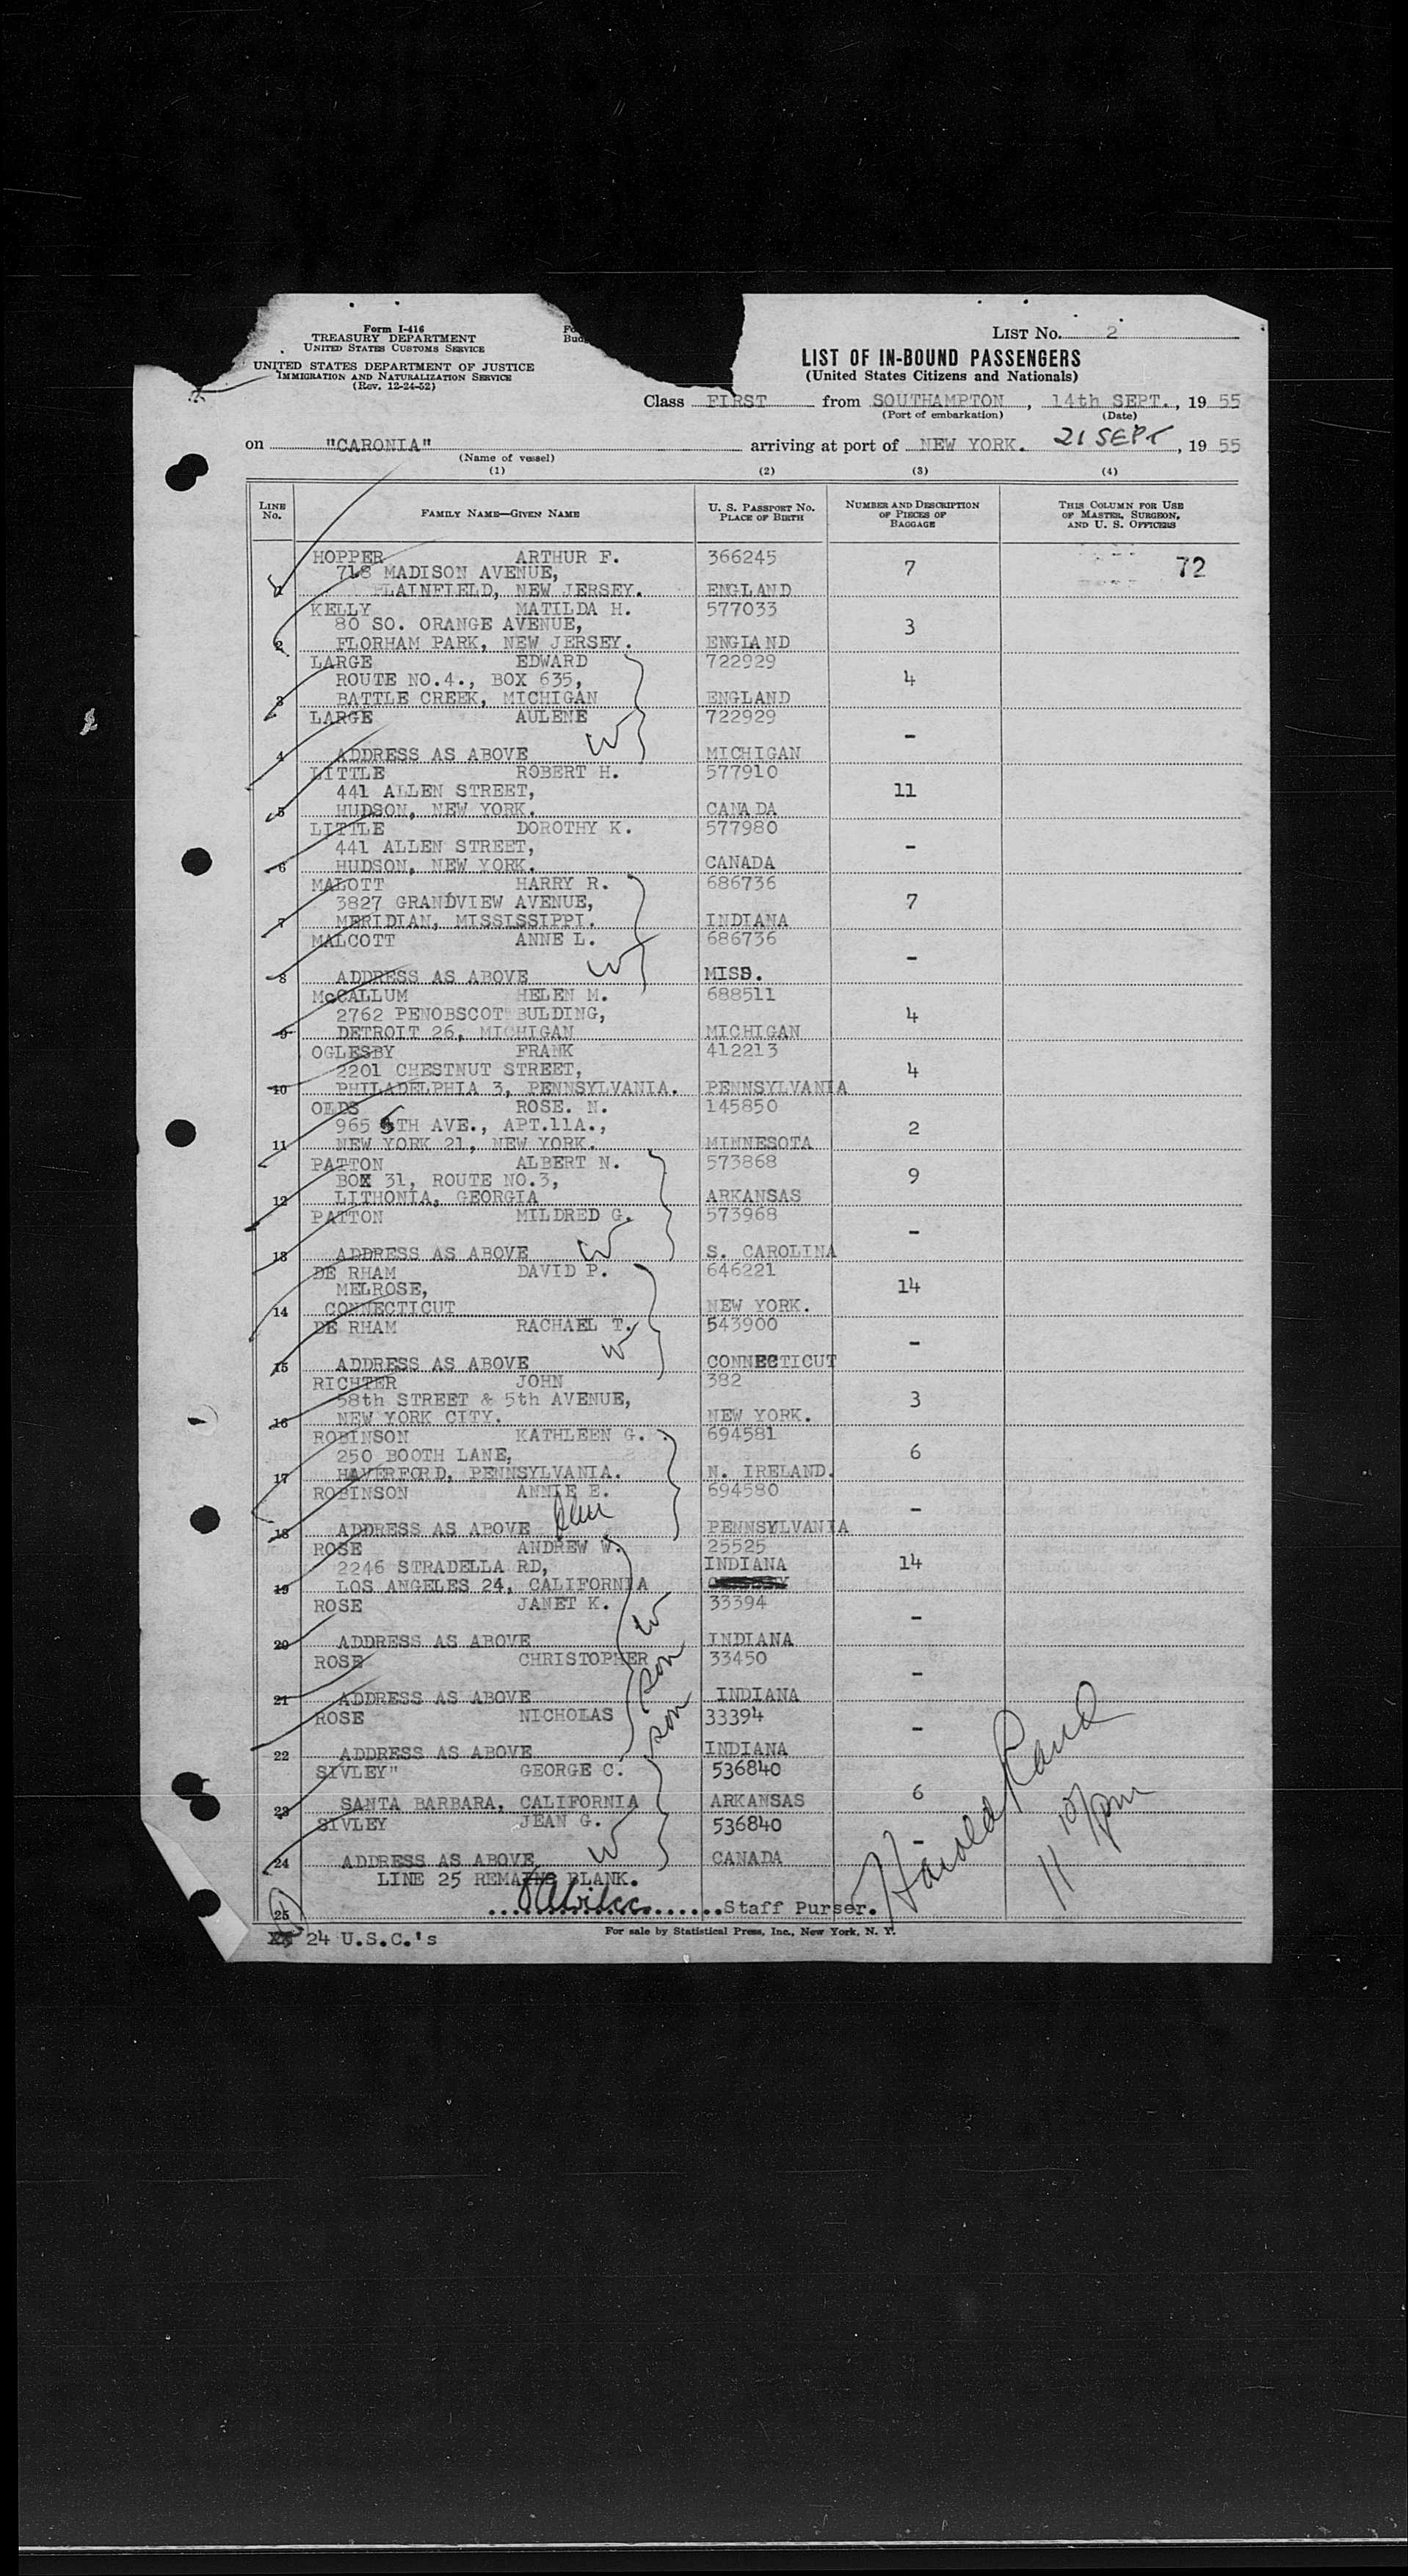 Form I-416
TREASURY DEPARTMENT
UNITED STATES CUSTOMS SERVICE
UNITED STATES DEPARTMENT OF JUSTICE
IMMIGRATION AND NATURALIZATION SERVICE
(Rev. 12-24-52)
LIST NO. 2
LIST OF IN-BOUND PASSENGERS
(United States Citizens and Nationals)
Class FIRST from SOUTHAMPTON, 14th SEPT., 1955
(Port of embarkation) (Date)
on "CARONIA" arriving at port of NEW YORK. 21 SEPT, 1955
(Name of vessel)
(1) (2) (3) (4)
LINE NO. FAMILY NAME—GIVEN NAME U. S. PASSPORT NO. PLACE OF BIRTH NUMBER AND DESCRIPTION OF PIECES OF BAGGAGE THIS COLUMN FOR USE OF MASTER, SURGEON, AND U. S. OFFICERS
HOPPER ARTHUR F. 366245 7 72
718 MADISON AVENUE,
1 PLAINFIELD, NEW JERSEY. ENGLAND
KELLY MATILDA H. 577033
80 SO. ORANGE AVENUE, 3
2 FLORHAM PARK, NEW JERSEY. ENGLAND
LARGE EDWARD 722929
ROUTE NO.4., BOX 635, 4
3 BATTLE CREEK, MICHIGAN ENGLAND
LARGE AULENE 722929
W -
4 ADDRESS AS ABOVE MICHIGAN
LITTLE ROBERT H. 577910
441 ALLEN STREET, 11
5 HUDSON, NEW YORK. CANADA
LITTLE DOROTHY K. 577980
441 ALLEN STREET, -
6 HUDSON, NEW YORK. CANADA
MALOTT HARRY R. 686736
3827 GRANDVIEW AVENUE, 7
7 MERIDIAN, MISSISSIPPI. INDIANA
MALCOTT ANNE L. 686736
W -
8 ADDRESS AS ABOVE MISS.
McCALLUM HELEN M. 688511
2762 PENOBSCOT BULDING, 4
9 DETROIT 26, MICHIGAN MICHIGAN
OGLESBY FRANK 412213
2201 CHESTNUT STREET, 4
10 PHILADELPHIA 3, PENNSYLVANIA. PENNSYLVANIA
OLDS ROSE. N. 145850
965 5TH AVE., APT.11A., 2
11 NEW YORK 21, NEW YORK. MINNESOTA
PATTON ALBERT N. 573868
BOX 31, ROUTE NO.3, 9
12 LITHONIA, GEORGIA ARKANSAS
PATTON MILDRED G. 573968
W -
13 ADDRESS AS ABOVE S. CAROLINA
DE RHAM DAVID P. 646221
MELROSE, 14
14 CONNECTICUT NEW YORK.
DE RHAM RACHAEL T. 543900
W -
15 ADDRESS AS ABOVE CONNECTICUT
RICHTER JOHN 382
58th STREET & 5th AVENUE, 3
16 NEW YORK CITY. NEW YORK.
ROBINSON KATHLEEN G. 694581
250 BOOTH LANE, 6
17 HAVERFORD, PENNSYLVANIA. N. IRELAND.
ROBINSON ANNIE E. 694580
-
18 ADDRESS AS ABOVE PENNSYLVANIA
ROSE ANDREW W. 25525
2246 STRADELLA RD, INDIANA 14
19 LOS ANGELES 24, CALIFORNIA
ROSE JANET K. 33394
W -
20 ADDRESS AS ABOVE INDIANA
ROSE CHRISTOPHER 33450
son -
21 ADDRESS AS ABOVE INDIANA
ROSE NICHOLAS 33394
son -
22 ADDRESS AS ABOVE INDIANA
SIVLEY" GEORGE C. 536840
23 SANTA BARBARA, CALIFORNIA ARKANSAS 6
SIVLEY JEAN G. 536840
W -
24 ADDRESS AS ABOVE CANADA
LINE 25 REMAINS BLANK.
25 Staff Purser.
Harold Rand
11 10/pm
24 U.S.C.'s
For sale by Statistical Press, Inc., New York, N. Y.